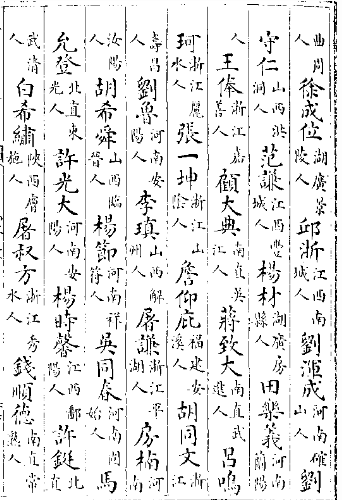 曲周人徐成位湖廣景陵人邱浙江西南城人劉渾成河南確山人劉
守仁山西洪洞人范謙江西豐城人楊材湖廣房縣人田樂義河南蘭陽
人王俸浙江嘉善人顧大典南直吳江人蔣致大南直武進人呂鳴
珂浙江麗水人張一坤浙江山陰人詹仰庇福建安溪人胡同文浙江
壽昌人劉魯河南安陽人李瑱山西解州人屠謙浙江平湖人房楠河南
汝陽人胡希舜山西臨晉人楊節河南祥符人吳同春河南固始人馬
允登北直東光人許光大河南安陽人楊時馨江西鄱陽人許鋌北直
武清人白希繡陝西膚施人屠叔方浙江秀水人錢順德南直常熟人